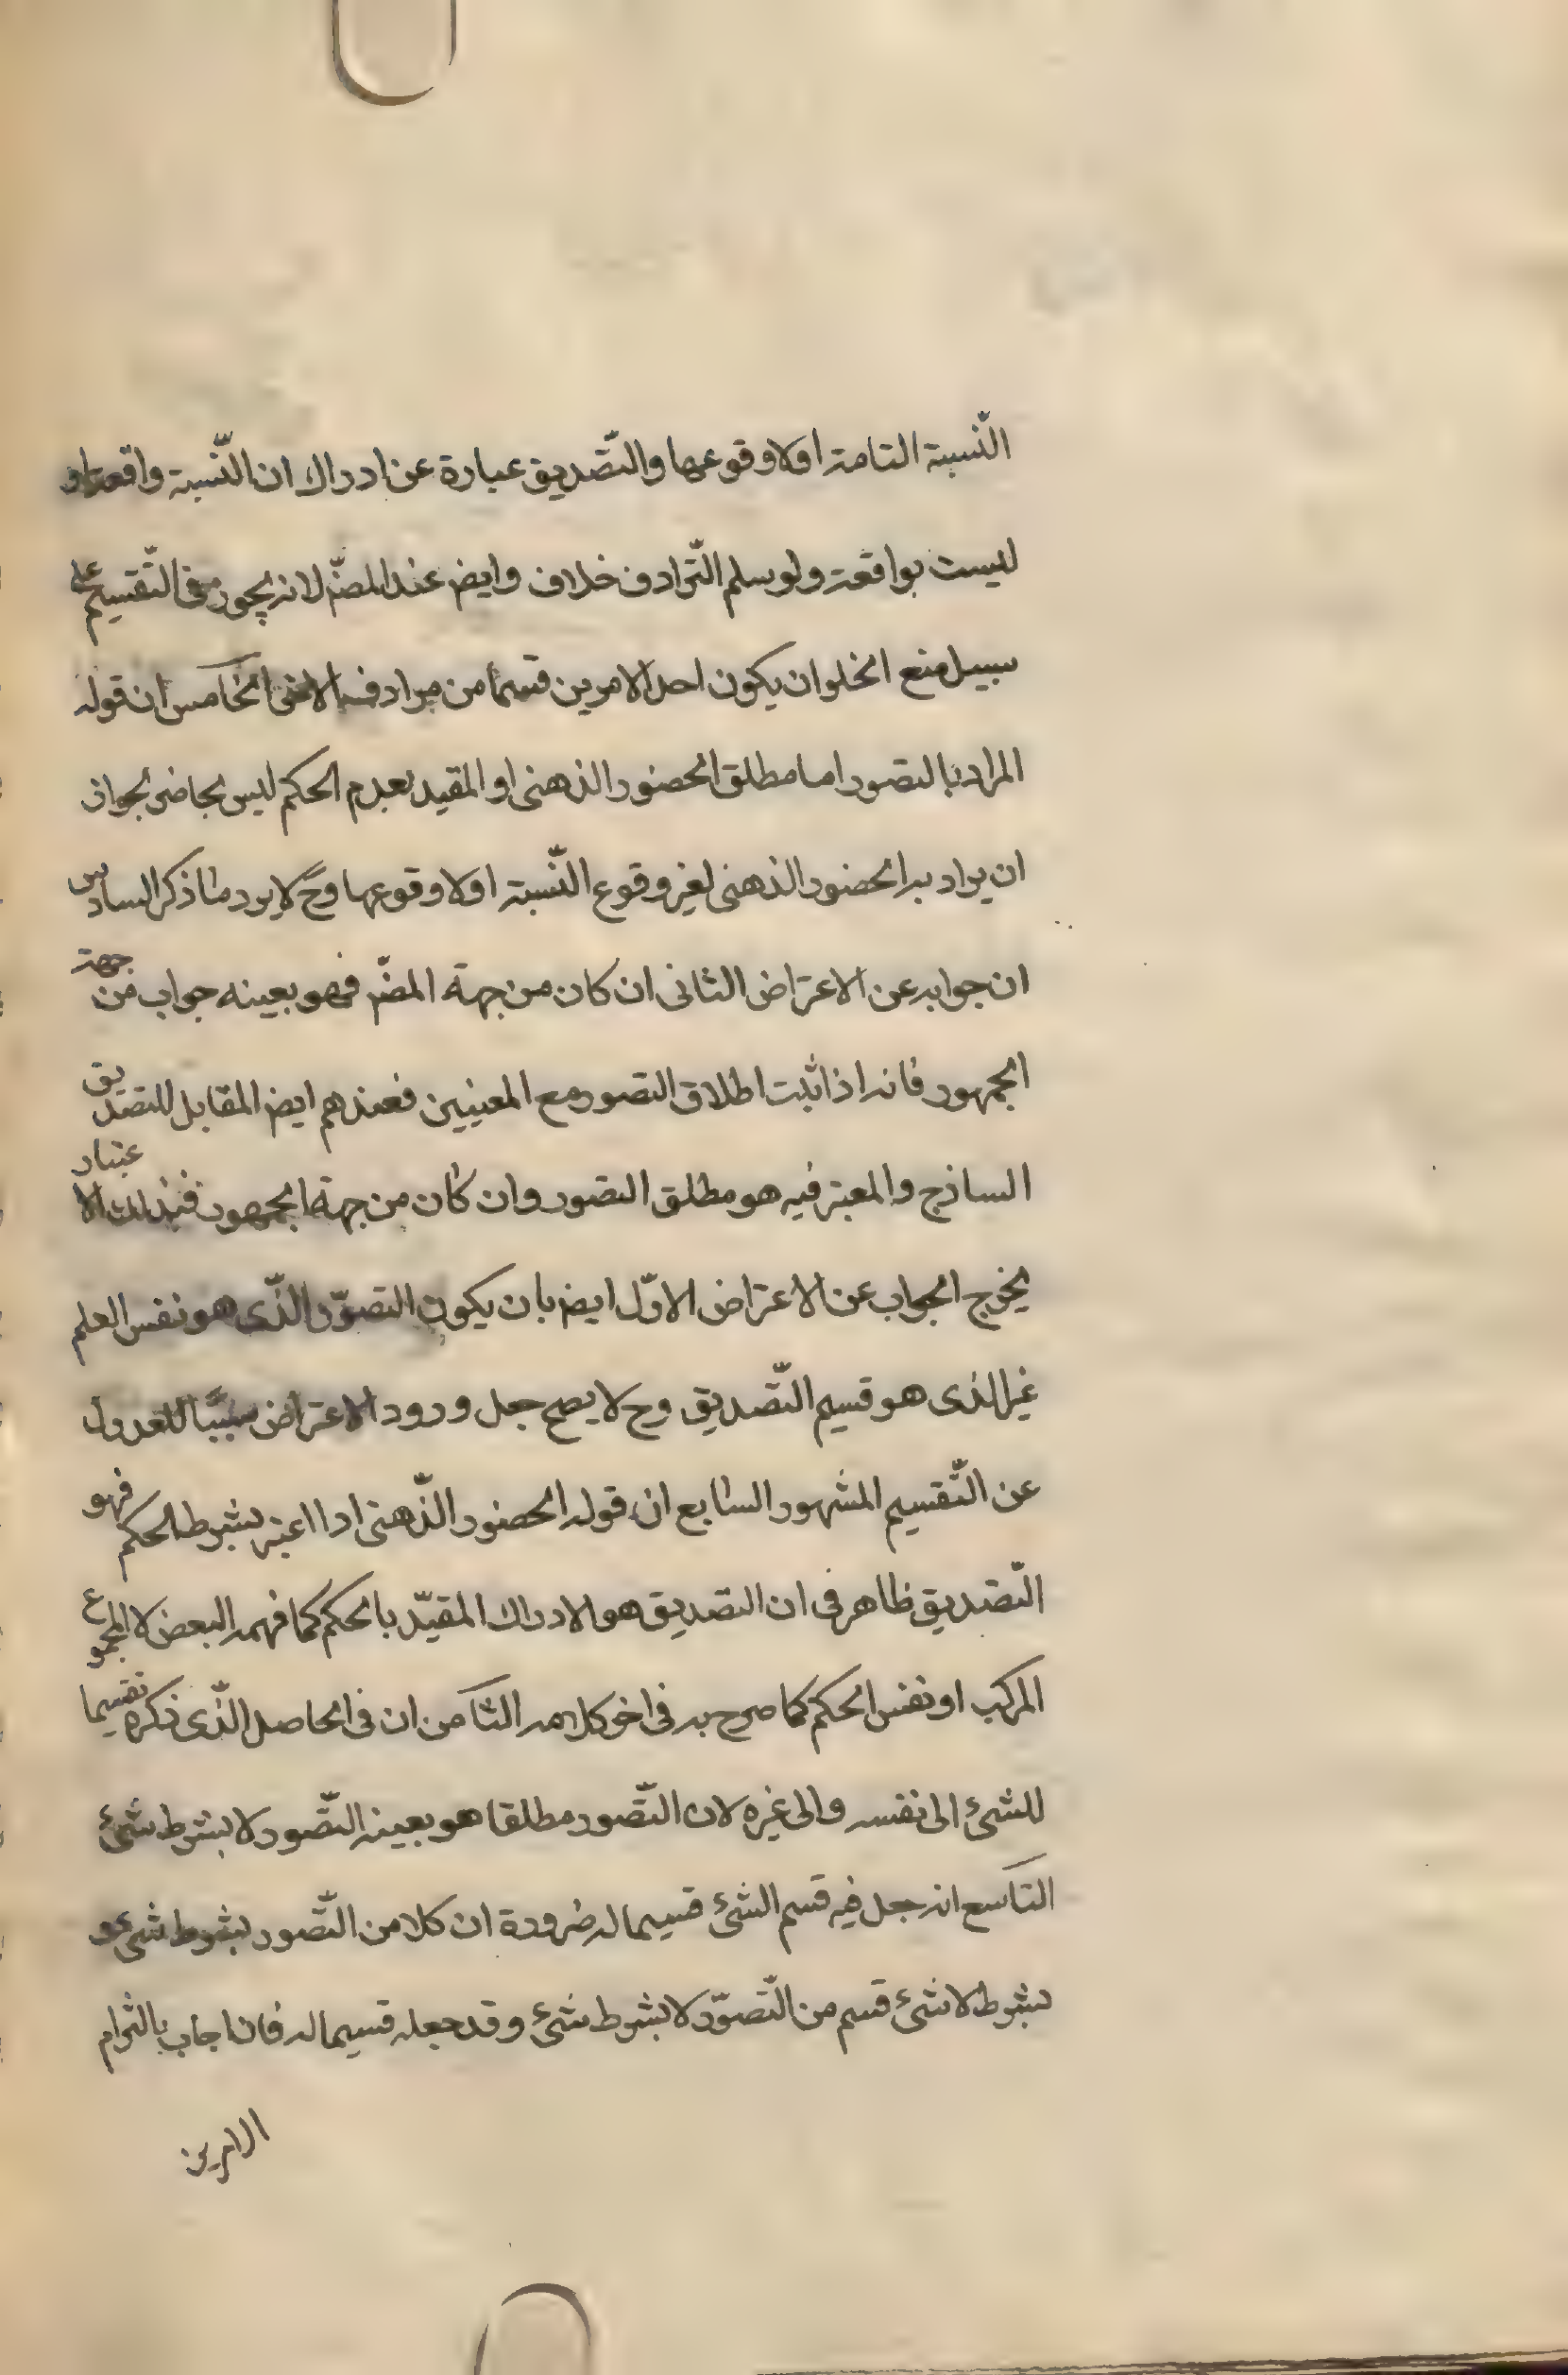 النّسبة التامة اولا وقوعها والتّصديق عبارة عن ادراك ان النّسبة واقعة او
ليست بواقعة ولو سلم التّرادف خلاف وايض عند المصّ لانه يجوز في التّقسيم على
سبيل منع الخلو ان يكون احد الامرين قسما من مرادف الاخر الخامس ان قوله
المراد بالتصور اما مطلق الحضور الذهنى او المقيد بعدم الحكم ليس بحاضر لجواز
ان يراد به الحضور الذهنى لغير وقوع النّسبة اولا وقوعها وحّ لا يرد ما ذكر السادس
ان جوابه عن الاعتراض الثانى ان كان من جهة المصّ فهو بعينه جواب من جهة
الجمهور فانه اذا ثبت اطلاق التصور مع المعنيين فعندهم ايض المقابل للتصديق
الساذج والمعتبر فيه هو مطلق التصور وان كان من جهة الجمهور فبذلك الاعتبار
يخرج الجواب عن الاعتراض الاوّل ايض بان يكون التصوّر الذّى هو نفس العلم
غير الذى هو قسيم التّصديق وح لا يصح جعل ورود الاعتراض سببّا للعدول
عن التّقسيم المشهور السابع ان قوله الحضور الذّهنى اذا اعتبر بشرط الحكم فهو
التّصديق ظاهر فى ان التصديق هو الادراك المقيّد بالحكم كما فهمه البعض لا المجموع
المركب او نفس الحكم كما صرح به فى اخر كلامه الثامن ان فى الحاصل الذّى ذكره تقسيما
للشئ الى نفسه والى غيره لان التّصور مطلقا هو بعينه التّصور لا بشرط شئ
التاسع انه جعل فيه قسم الشئ قسيما له ضرورة ان كلا من التّصور بشرط شئ و
بشرط لا شئ قسم من التّصوّر لا بشرط شئ وقد جعله قسيما له فان اجاب بالتزام
الامرين